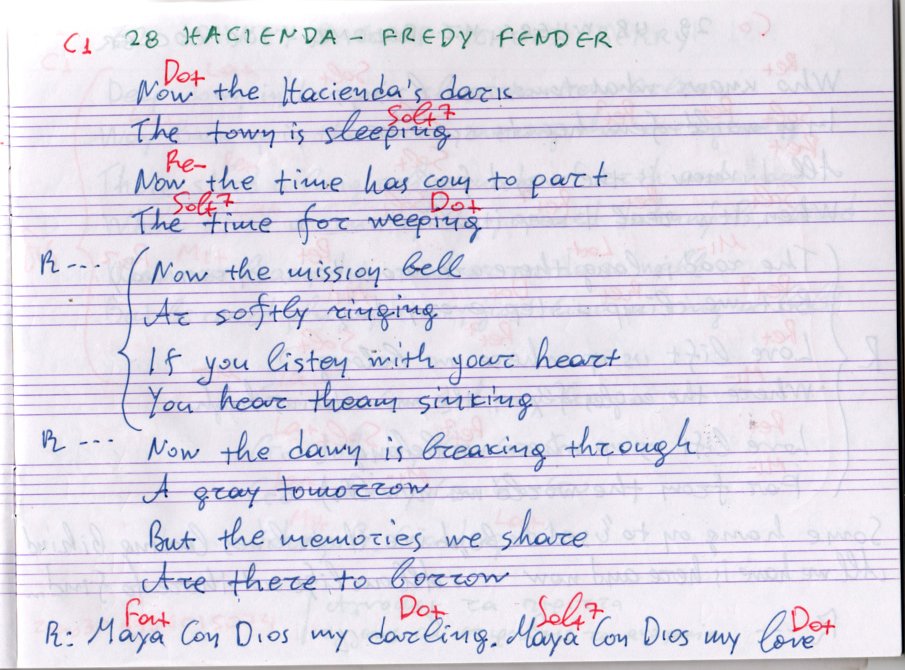 C1 28 HACIENDA - FREDY FENDER
Do+
Now the Hacienda's dark
Sol+7
The town is sleeping
Re-
Now the time has com to part
Sol+7 Do+
The time for weeping
R --- Now the mission bell
Ar softly ringing
If you listen with your heart
You hear theam sinking
R --- Now the dawn is breaking through
A gray tomorrow
But the memories we share
Are there to borrow
Fa+ Do+ Sol+7 Do+
R: Maya Con Dios my darling. Maya Con Dios my love